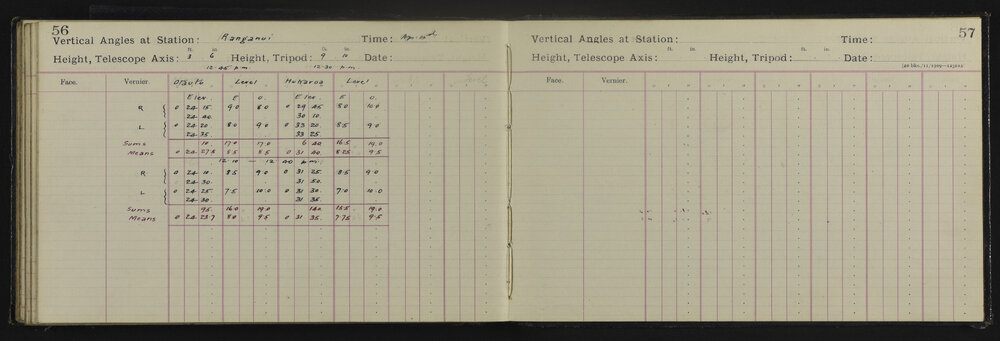 56
Vertical Angles at Station: Ranganui Time: Apr. 12th
ft. in. ft. in.
Height, Telescope Axis: 3 6 Height, Tripod: 9 10 Date:
12.45 p.m. 12.30 p.m.
Face. Vernier. Level Hukaroa Level
Elev. E O. Elev. E O.
R 0 24 15. 9.0 8.0 0 29 45 8.0 10.0
24 40. 30 10.
L 0 24 20 8.0 9.0 0 33 20. 8.5 9.0
24 35. 33 25.
Sums 110 17.0 17.0 6 40 16.5 19.0
Means 0 24 27.5 8.5 8.5 0 31 40. 8.25 9.5
12.10 — 12 40 p.m.
R 0 24 10. 8.5 9.0 0 31 25. 8.5 9.0
24 30. 31 50.
L 0 24 25. 7.5 10.0 0 31 30. 7.0 10.0
24 30. 31 35.
Sums 95 16.0 19.0 140 15.5 19.0
Means 0 24 23.7 8.0 9.5 0 31 35. 7.75 9.5
57
Vertical Angles at Station: Time:
ft. in. ft. in.
Height, Telescope Axis: Height, Tripod: Date:
Face. Vernier.